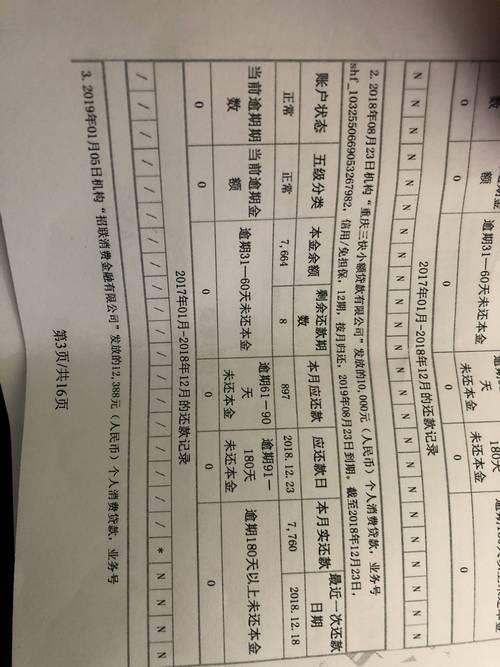 数 额 逾期31—60天未还本金 天 180天
未还本金 未还本金
0 0 0 0 0 0
2017年01月-2018年12月的还款记录
N N N N N N N N N N N N N N N N N N N N N N N N
2. 2018年08月23日机构“重庆三快小额贷款有限公司”发放的10,000元（人民币）个人消费贷款，业务号
shf_1032550669053267982，信用/免担保，12期，按月归还，2019年08月23日到期。截至2018年12月23日，
账户状态 五级分类 本金余额 剩余还款期数 本月应还款 应还款日 本月实还款 最近一次还款日期
正常 正常 7,664 8 897 2018.12.23 7,760 2018.12.18
当前逾期期数 当前逾期金额 逾期31—60天未还本金 逾期61－90天未还本金 逾期91－180天未还本金 逾期180天以上未还本金
0 0 0 0 0 0
2017年01月-2018年12月的还款记录
/ / / / / / / / / / / / / / / / / / / * N N N N
3. 2019年01月05日机构“招联消费金融有限公司”发放的12,388元（人民币）个人消费贷款，业务号
第3页/共16页